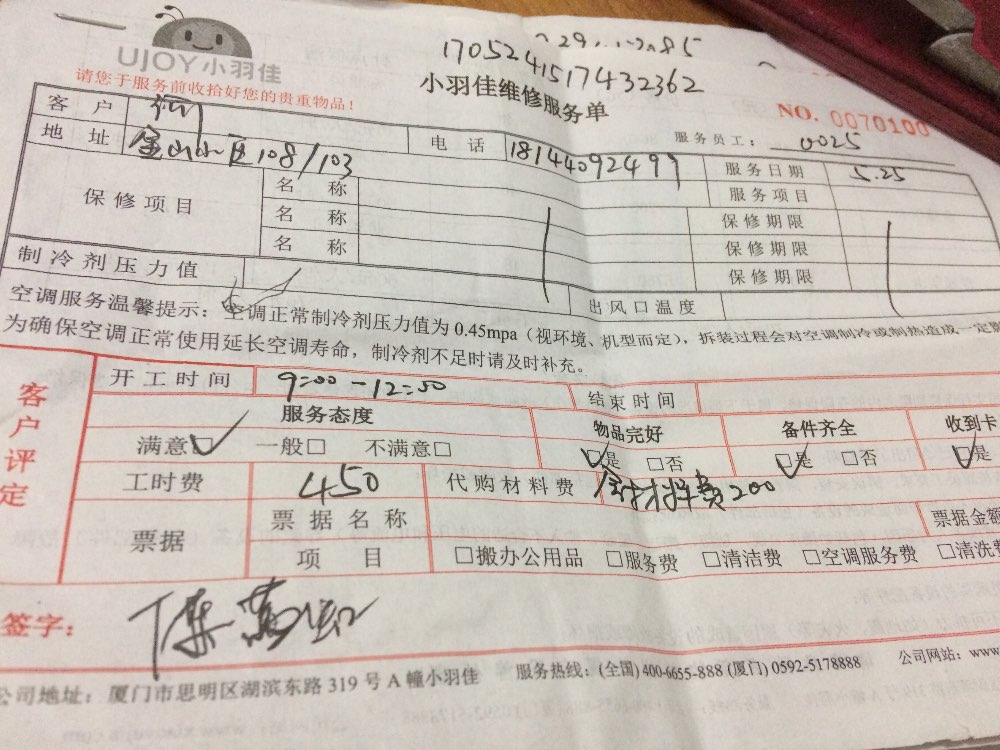 UJOY小羽佳
请您于服务前收拾好您的贵重物品！
1705241517432362
小羽佳维修服务单
NO. 0070100
服务员工： 0025
客户
地址 金山小区108/103
电话 18144092499
服务日期 5.25
服务项目
保修项目
名称
保修期限
名称
保修期限
名称
保修期限
制冷剂压力值
出风口温度
空调服务温馨提示：空调正常制冷剂压力值为 0.45mpa（视环境、机型而定），拆装过程会对空调制冷或制热造成一定
为确保空调正常使用延长空调寿命，制冷剂不足时请及时补充。
客户评定
开工时间 9:00-12:50
结束时间
服务态度
物品完好
备件齐全
收到卡
满意☑ 一般□ 不满意□
☑是 □否
☑是 □否
☑是
工时费 450
代购材料费 含材料费200
票据
票据名称
票据金额
项目
□搬办公用品 □服务费 □清洁费 □空调服务费 □清洗费
签字：
公司地址：厦门市思明区湖滨东路 319 号 A 幢小羽佳
服务热线：(全国) 400-6655-888 (厦门) 0592-5178888
公司网站：www.